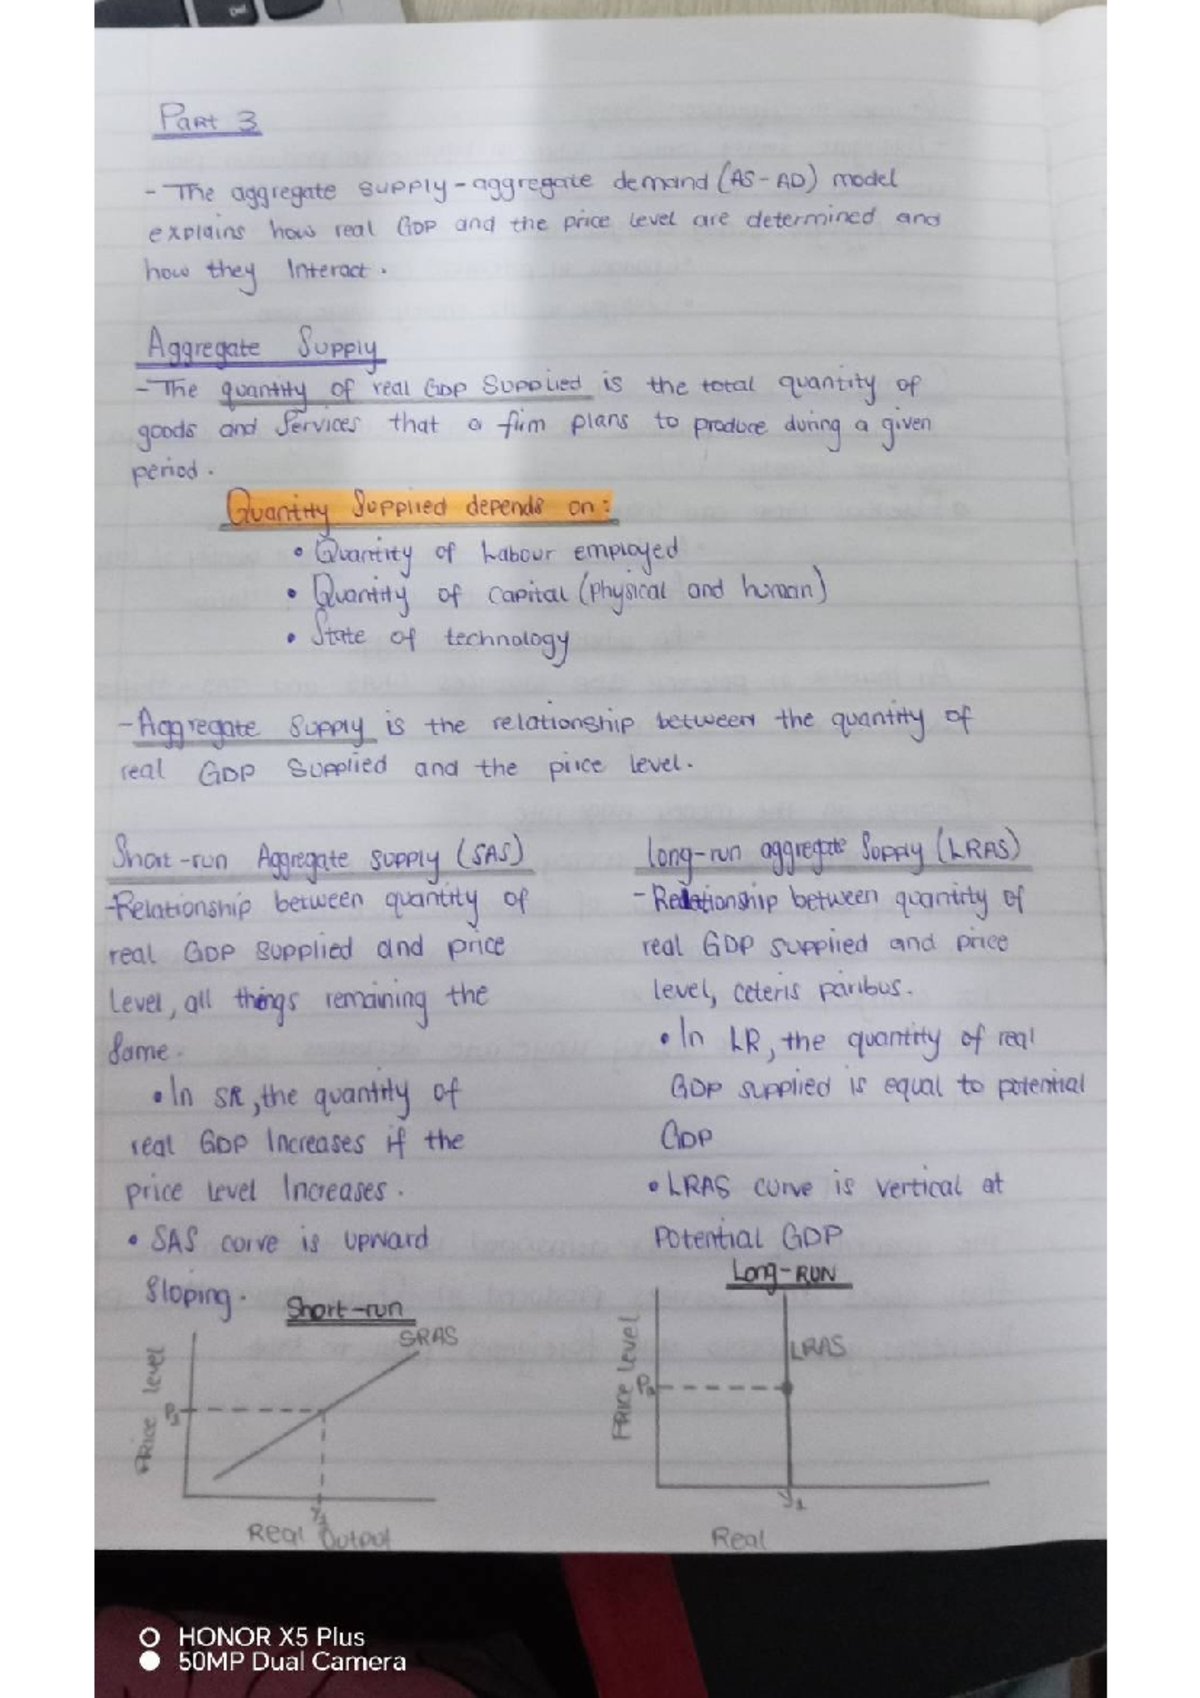 Part 3
- The aggregate supply-aggregate demand (AS-AD) model
explains how real GDP and the price level are determined and
how they Interact.
Aggregate Supply
- The quantity of real GDP Supplied is the total quantity of
goods and Services that a firm plans to produce during a given
period.
Quantity Supplied depends on:
• Quantity of Labour employed
• Quantity of capital (physical and human)
• State of technology
- Aggregate Supply is the relationship between the quantity of
real GDP Supplied and the price level.
Short-run Aggregate supply (SAS)
- Relationship between quantity of
real GDP supplied and price
level, all things remaining the
Same.
• In SR, the quantity of
real GDP Increases if the
price level Increases.
• SAS curve is upward
Sloping.
Short-run
SRAS
Price level
P1
Y1
Real Output
Long-run aggregate Supply (LRAS)
- Relationship between quantity of
real GDP supplied and price
level, ceteris paribus.
• In LR, the quantity of real
GDP supplied is equal to potential
GDP
• LRAS curve is vertical at
Potential GDP
Long-RUN
LRAS
Price level
Y1
Real
HONOR X5 Plus
50MP Dual Camera